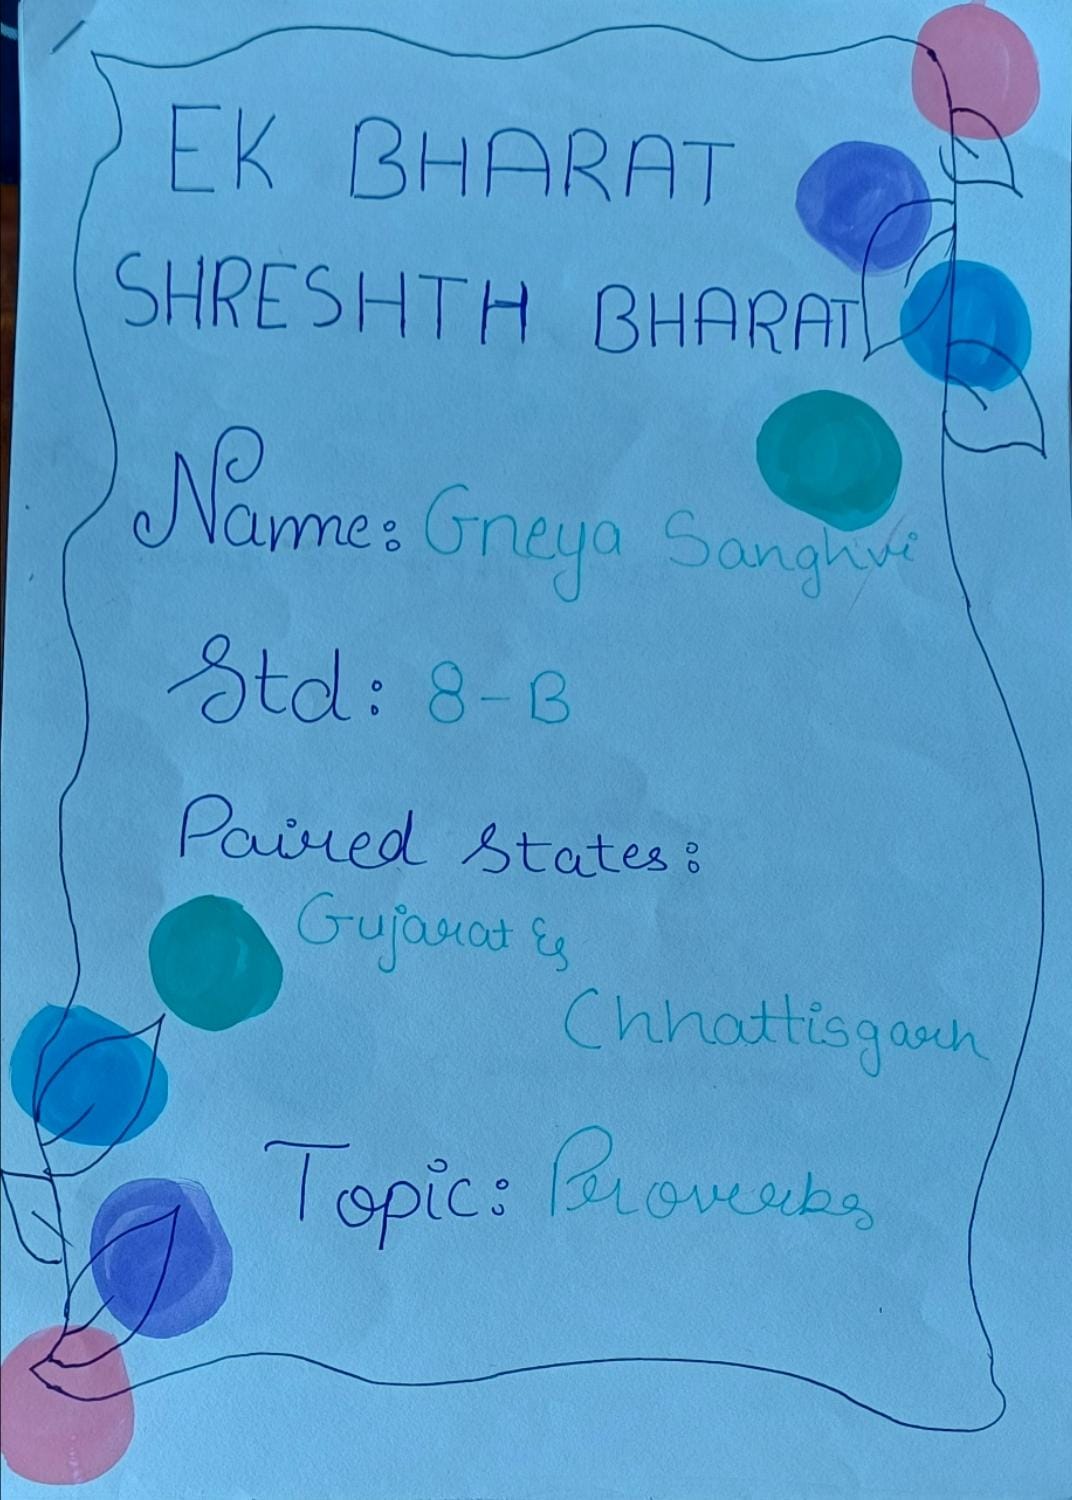 EK BHARAT
SHRESHTH BHARAT
Name: Gneya Sanghvi
Std: 8-B
Paired States:
Gujarat &
Chhattisgarh
Topic: Proverbs